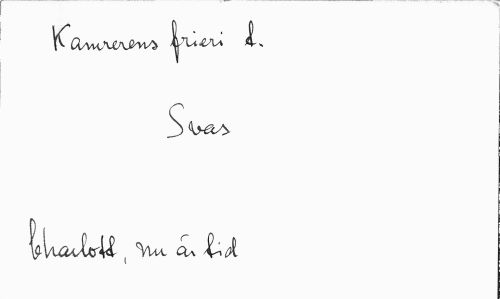 Kamrerens frieri t.
Svas
Charlott, nu är tid